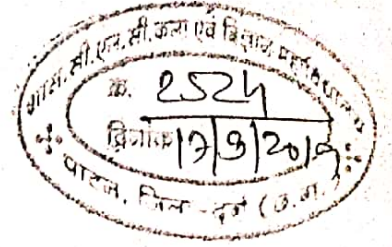 शास. सी.एल.सी. कला एवं विज्ञान महाविद्यालय
क्र. 2524
दिनांक 17/9/20
पाटन, जिला - दुर्ग (छ.ग.)